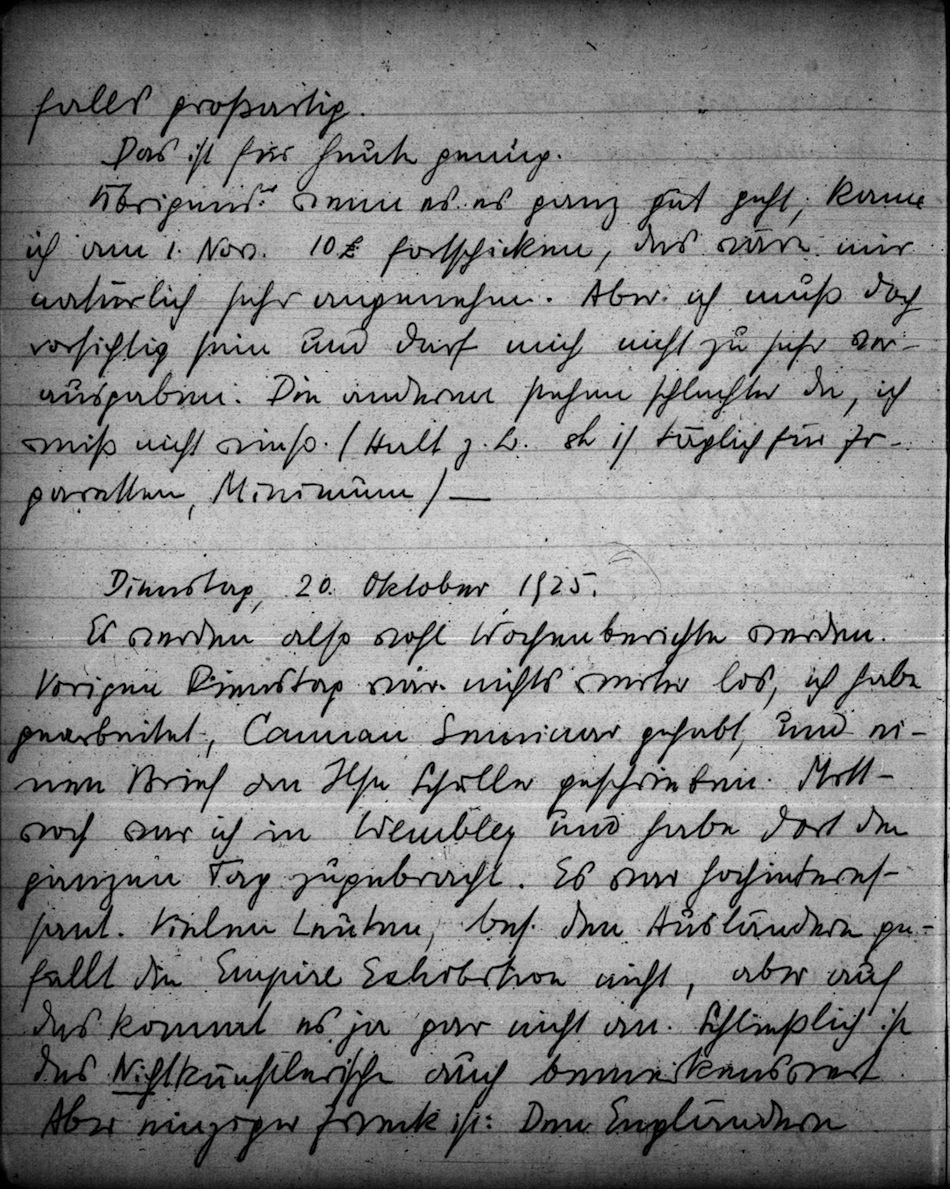 falls großartig.
Das ist für heute genug.
Übrigens: wenn es es ganz gut geht, kann
ich am 1. Nov. 10 £ fortschicken, das wäre mir
natürlich sehr angenehm. Aber ich muß doch
vorsichtig sein und darf mich nicht zu sehr ver-
ausgaben. Die anderen stehen schlechter da, ich
weiß nicht wieso. (Halt z. B. 1/ täglich für Zi-
garetten, Minimum) —
Dienstag, 20. Oktober 1925.
Es werden also wohl Wochenberichte werden.
Vorigen Dienstag war nichts weiter los, ich habe
gearbeitet, Cannan Seminar gehabt, und ei-
nen Brief an Ilse Schüller geschrieben. Mitt-
woch war ich in Wembley und habe dort den
ganzen Tag zugebracht. Es war hochinteres-
sant. Vielen Leuten, bes. den Ausländern ge-
fällt die Empire Exhibition nicht, aber auf
das kommt es ja gar nicht an. Schließlich ist
das Nichtkünstlerische auch bemerkenswert.
Aber einziger Zweck ist: Den Engländern